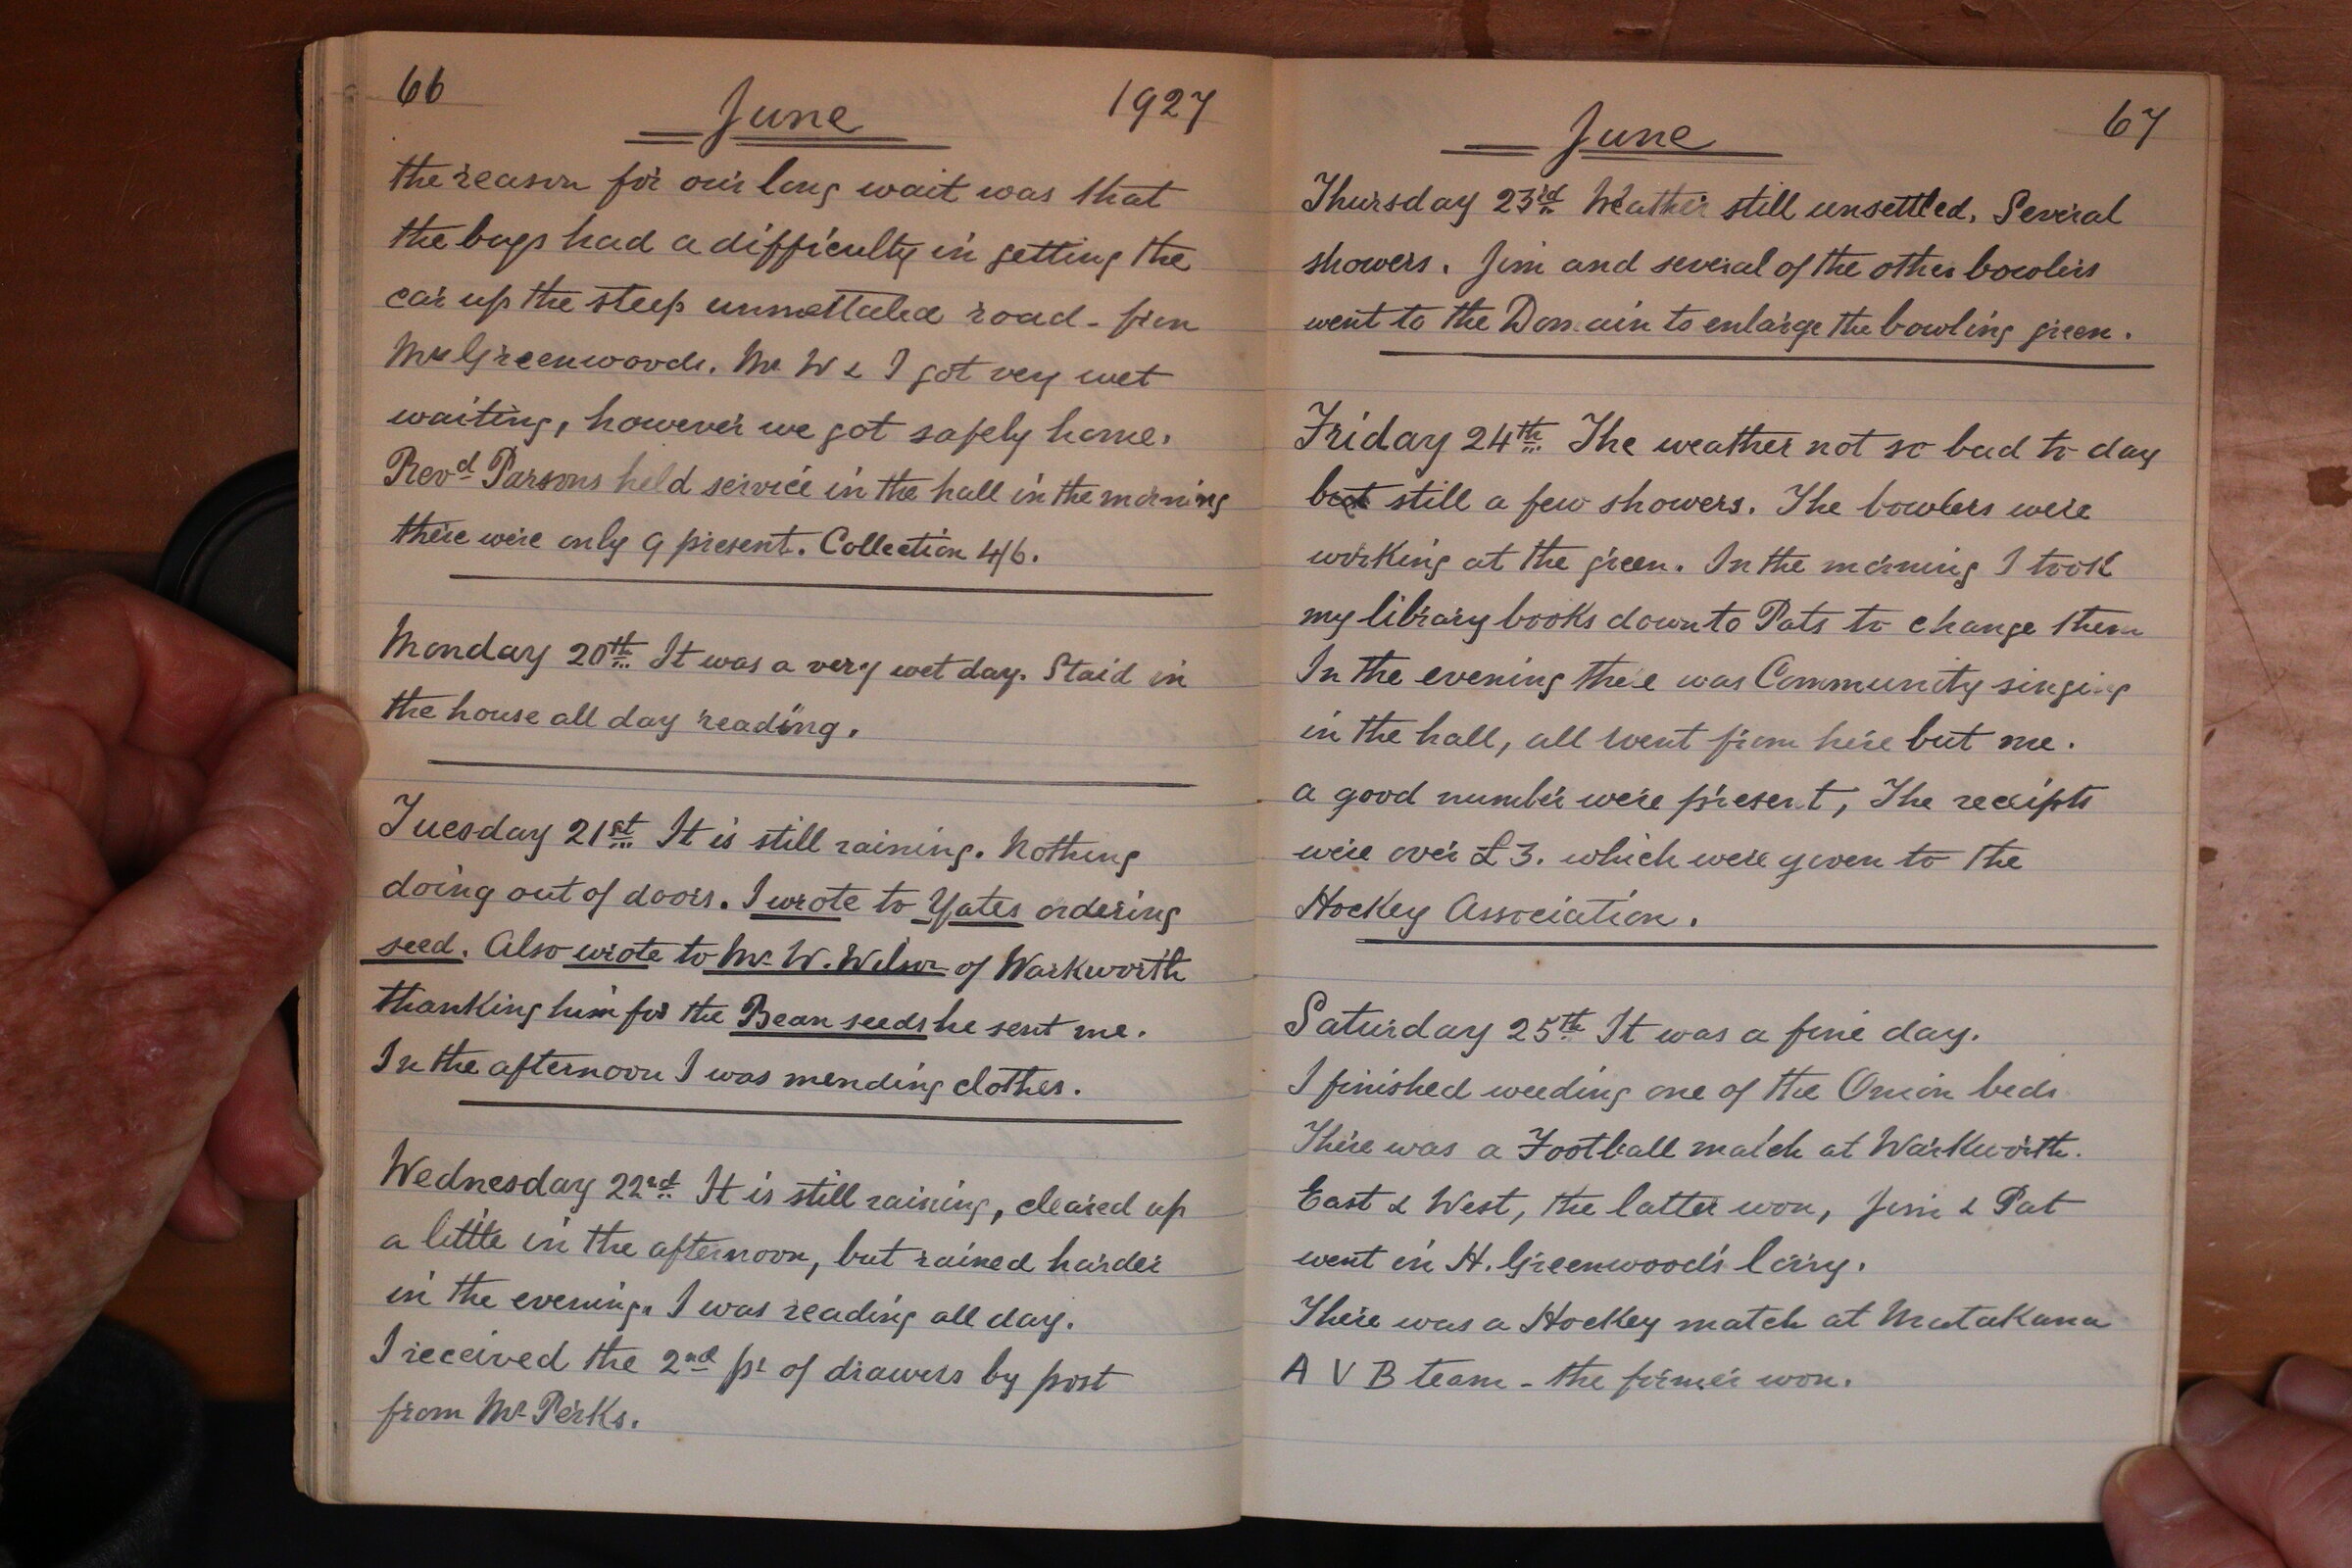 66 June 1927
the reason for our long wait was that
the boys had a difficulty in getting the
car up the steep unmettaled road - from
Mr Greenwoods. Mr W & I got very wet
waiting, however we got safely home.
Revd Parsons held service in the hall in the morning
there were only 9 present. Collection 4/6.
Monday 20th It was a very wet day. Staid in
the house all day reading.
Tuesday 21st It is still raining. Nothing
doing out of doors. I wrote to Yates ordering
seed. Also wrote to Mr. W. Wilson of Warkworth
thanking him for the Bean seeds he sent me.
In the afternoon I was mending clothes.
Wednesday 22nd It is still raining, cleared up
a little in the afternoon, but rained harder
in the evening. I was reading all day.
I received the 2nd pr of drawers by post
from Mr Perks.
June 67
Thursday 23rd Weather still unsettled. Several
showers. Jim and several of the other bowlers
went to the Domain to enlarge the bowling green.
Friday 24th The weather not so bad to day
but still a few showers. The bowlers were
working at the green. In the morning I took
my library books down to Pats to change them
In the evening there was Community singing
in the hall, all went from here but me.
a good number were present, The receipts
were over £3. which were given to the
Hockey Association.
Saturday 25th It was a fine day.
I finished weeding one of the Onion beds
There was a Football match at Warkworth.
East & West, the latter won, Jim & Pat
went in H. Greenwood's lorry.
There was a Hockey match at Matakana
A V B team - the former won.